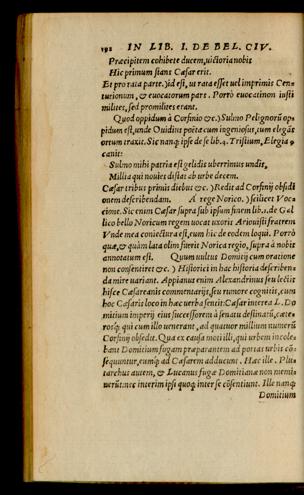 192 IN LIB. I. DE BEL. CIV.
Præcipitem cohibete ducem, uictoria nobis
Hic primum stans Cæsar erit.
Et pro rata parte.) id est, ut rata esset uel imprimis Cen-
turionum, & euocatorum pars. Porrò euocati non iusti
milites, sed promilites erant.
Quod oppidum à Corfinio &c.) Sulmo Pelignorũ op-
pidum est, unde Ouidius poëta cum ingeniosus, tum elegãs
ortum traxit. Sic nanq; ipse de se lib. 4. Tristium, Elegia
canit:
Sulmo mihi patria est gelidis uberrimus undis,
Millia qui nouies distat ab urbe decem.
Cæsar tribus primis diebus &c.) Redit ad Corfinij obsidi
onem describendam. A rege Norico.) scilicet Vocc
cione. Sic enim Cæsar supra sub ipsum finem lib. 1. de Gal
lico bello Noricum regem uocat uxoris Ariouisti fratrem
Vnde mea coniectura est, eum hic de eodem loqui. Porrò
quæ, & quàm lata olim fuerit Norica regio, supra à nobis
annotatum est. Quum uultus Domitij cum oratione
non consentiret &c.) Historici in hac historia describen
da mire uariant. Appianus enim Alexandrinus seu lectis
hisce Cæsareanis commentarijs, seu rumore cognitis, cum
hoc Cæsaris loco in hæc uerba sentit: Cæsar interea L. Do
mitium imperij eius successorem à senatu destinatũ, cæte-
rosq; qui cum illo uenerant, ad quatuor millium numerũ
Corfinij obsedit. Qua ex causa moti illi, qui urbem incole-
bant Domitium fugam præparantem ad portas urbis cõ-
sequuntur, eumq; ad Cæsarem adducunt. Hæc ille. Plu-
tarchus autem, & Lucanus fugæ Domitianæ non memi-
nerũt: nec interim ipsi quoq; inter se cõsentiunt. Ille nanq;
Domitium